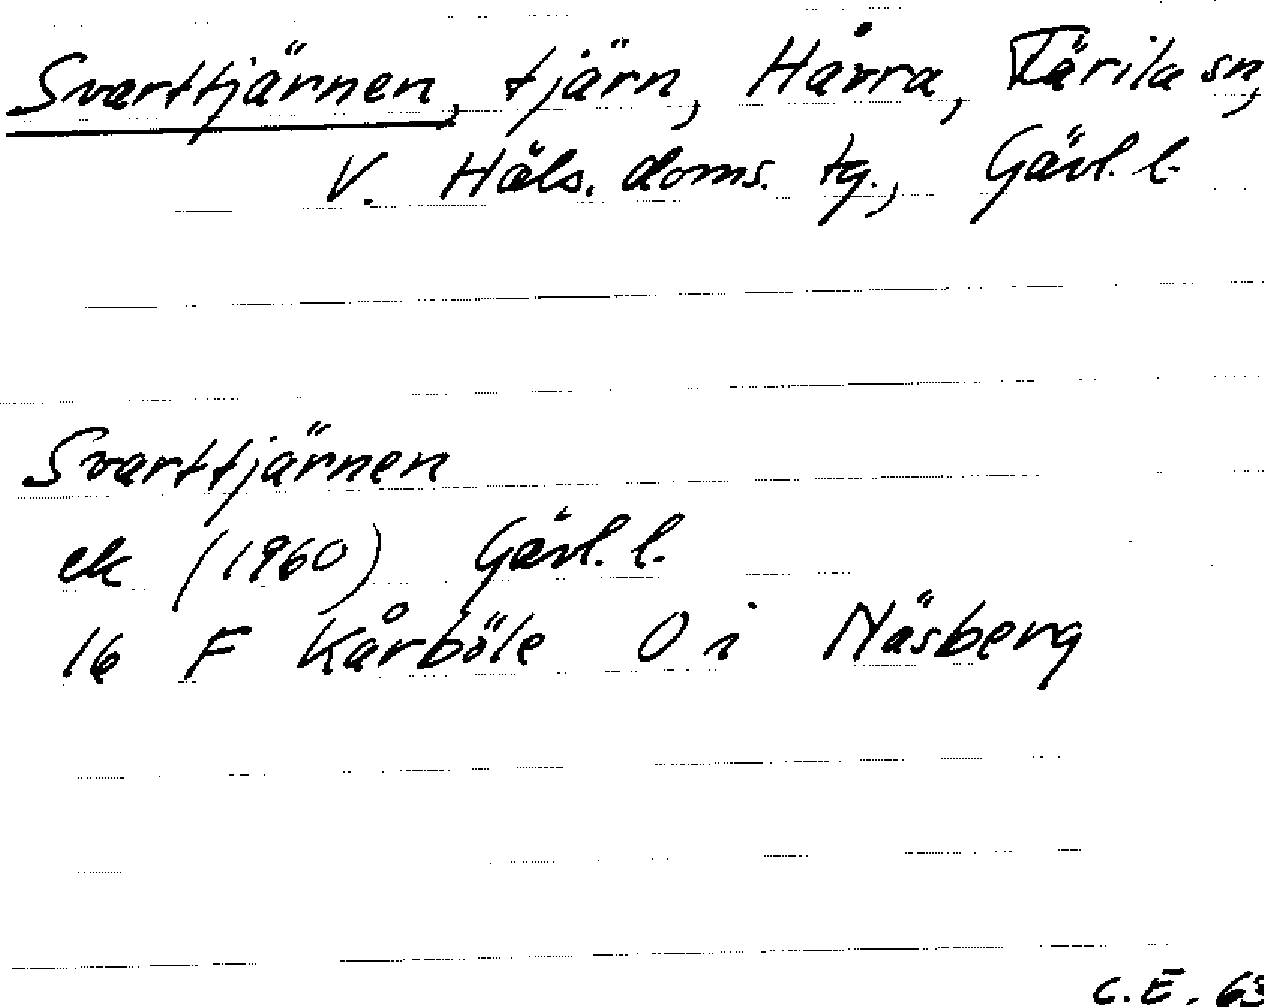 Svarttjärnen, tjärn, Håvra, Färila sn,
V. Häls. doms. tg., Gävl. l.
Svarttjärnen
ek (1960) Gävl. l.
16 F Kårböle O i Näsberg
C.E. 63